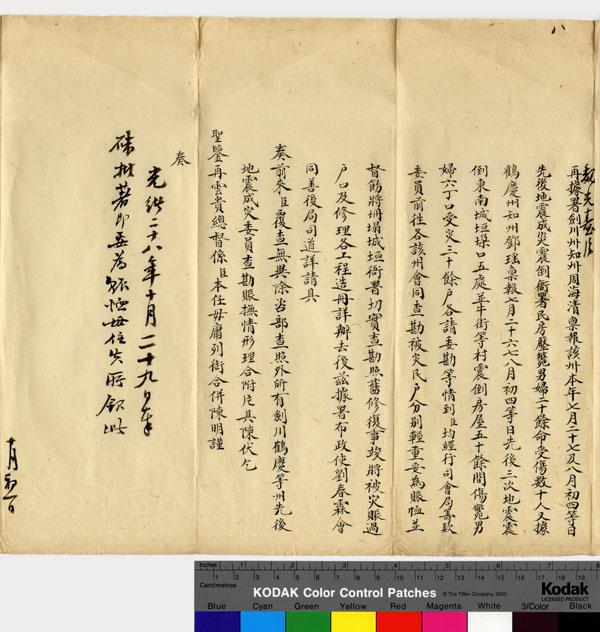 八
再據署劍川州知州周海清稟報該州本年七月二十七及八月初四等日
先後地震成災震倒衙署民房壓斃男婦二十餘命受傷數十人又據
鶴慶州知州鄧瑤稟報七月二十六七八月初四等日先後三次地震震
倒東南城垣垛口五處並牛街等村震倒房屋五十餘間傷斃男
婦六丁口受災三十餘戶各請委勘等情到臣均經行司會局籌款
委員前往各該州會同查勘被災民戶分別輕重妥為賑恤並
督飭將坍塌城垣衙署切實查勘照舊修復事竣將被災賑過
戶口及修理各工程造冊詳辦去後茲據署布政使劉春霖會
同善後局司道詳請具
奏前來臣覆查無異除咨部查照外所有劍川鶴慶等州先後
地震成災委員查勘賑撫情形理合附片具陳伏乞
聖鑒再雲貴總督係臣本任毋庸列銜合併陳明謹
奏
光緒二十八年十月二十九日奉
硃批著即妥為賑恤毋任失所欽此
Inches 1 2 3 4 5 6 7 8
Centimetres 1 2 3 4 5 6 7 8 9 10 11 12 13 14 15 16 17 18 19
KODAK Color Control Patches © The Tiffen Company, 2000
Kodak
LICENSED PRODUCT
Blue Cyan Green Yellow Red Magenta White 3/Color Black